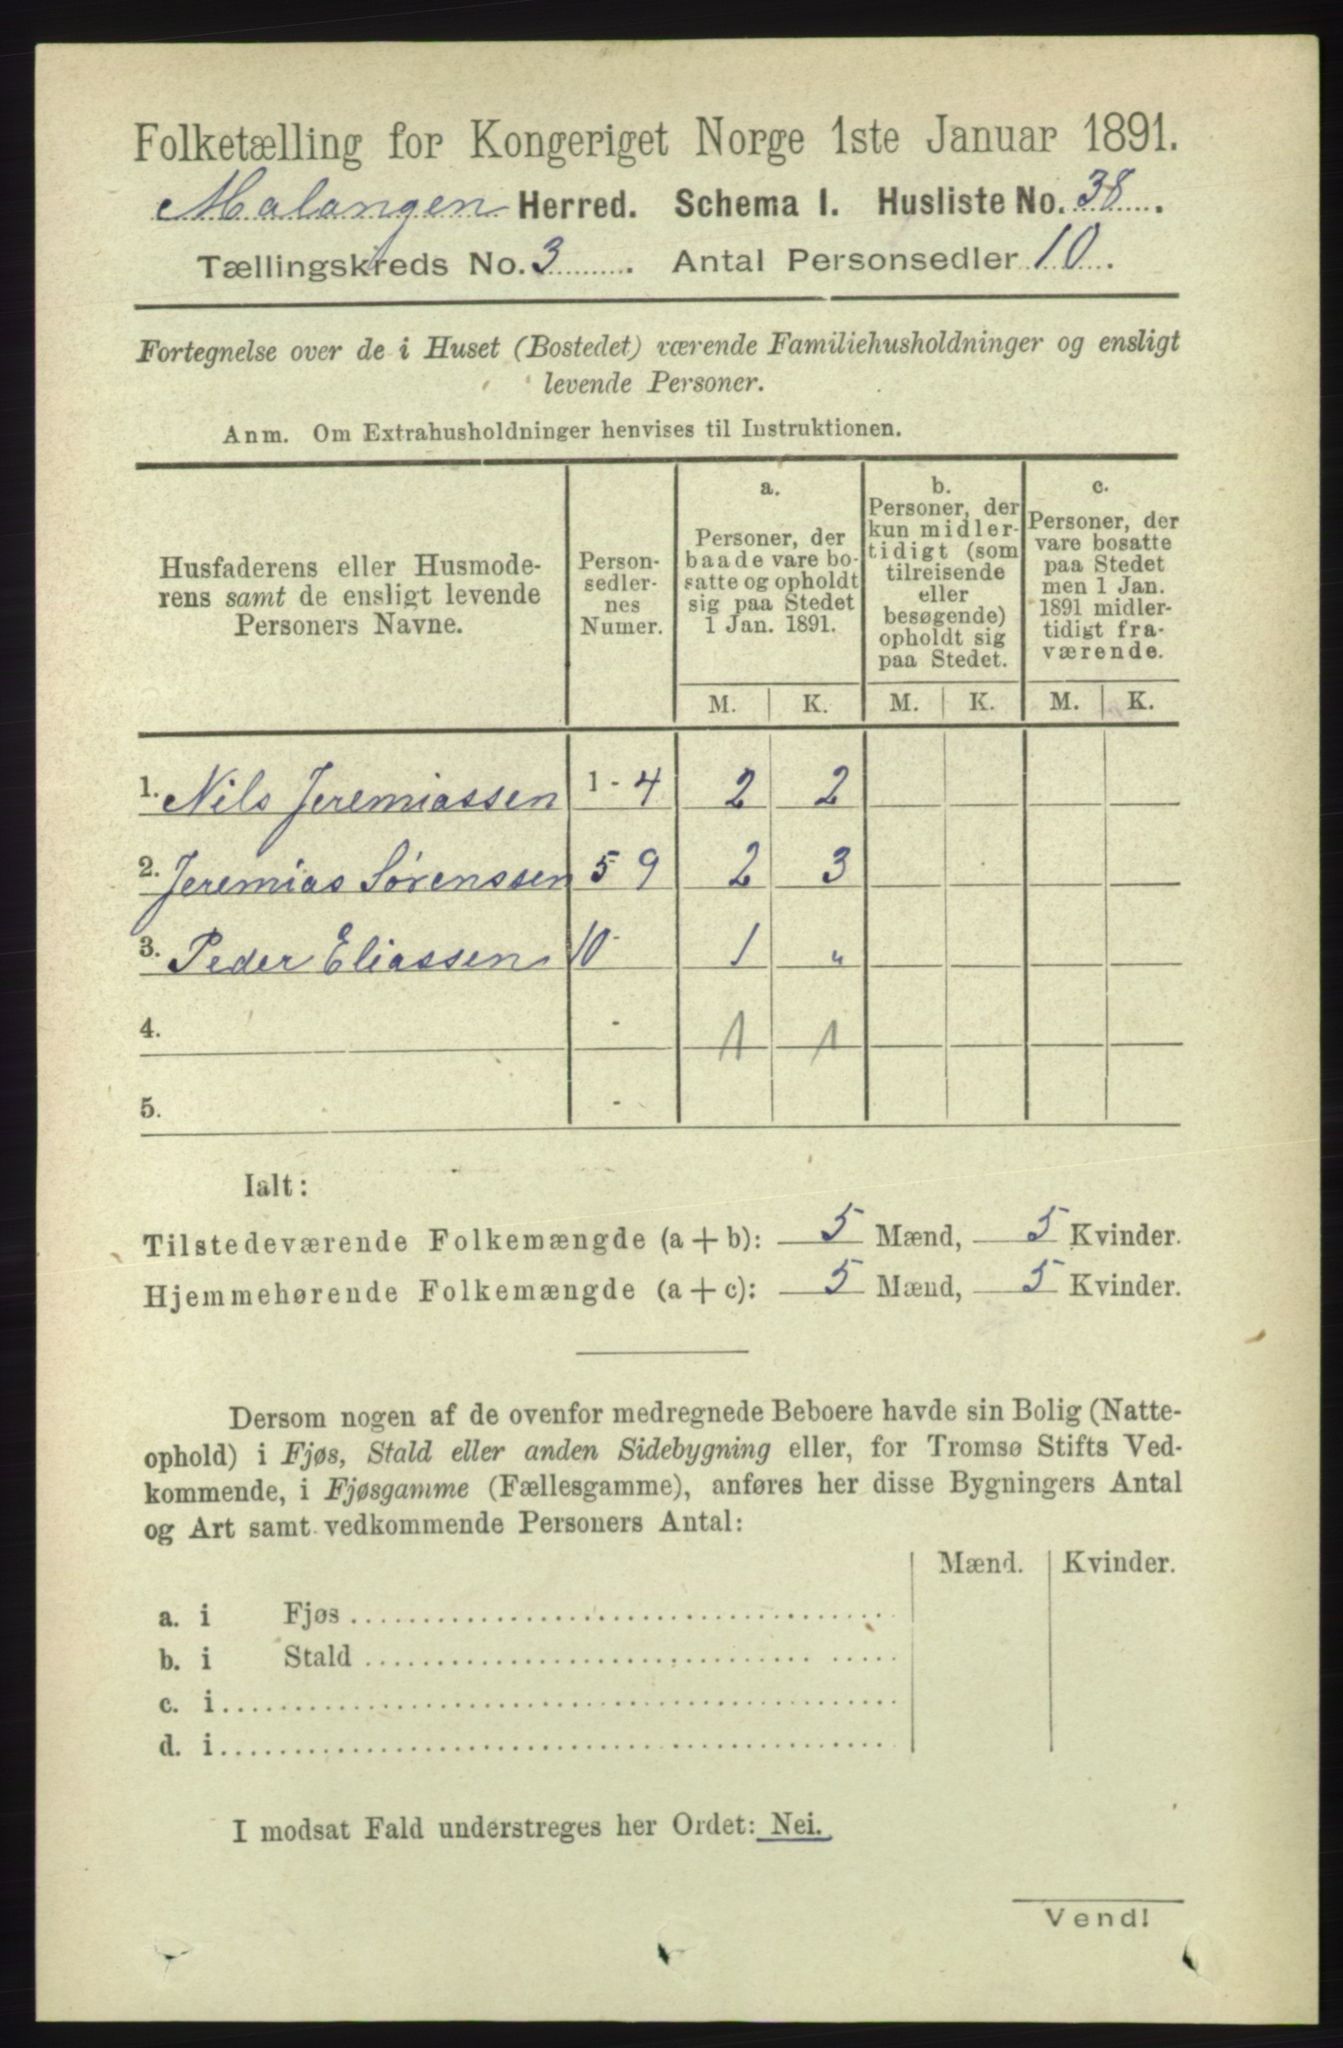 Folketælling for Kongeriget Norge 1ste Januar 1891.
Malangen Herred. Schema I. Husliste No. 38.
Tællingskreds No. 3. Antal Personsedler 10.
Fortegnelse over de i Huset (Bostedet) værende Familiehusholdninger og ensligt
levende Personer.
Anm. Om Extrahusholdninger henvises til Instruktionen.
Husfaderens eller Husmode-
rens samt de ensligt levende
Personers Navne.
Person-
sedler-
nes
Numer.
a.
Personer, der
baade vare bo-
satte og opholdt
sig paa Stedet
1 Jan. 1891.
b.
Personer, der
kun midler-
tidigt (som
tilreisende
eller
besøgende)
opholdt sig
paa Stedet.
c.
Personer, der
vare bosatte
paa Stedet
men 1 Jan.
1891 midler-
tidigt fra-
værende.
M. K. M. K. M. K.
1. Nils Jeremiassen 1 - 4 2 2
2. Jeremias Sørenssen 5 9 2 3
3. Peder Eliassen 10 - 1 "
4. - 1 1
5. -
Ialt:
Tilstedeværende Folkemængde (a + b): 5 Mænd, 5 Kvinder.
Hjemmehørende Folkemængde (a + c): 5 Mænd, 5 Kvinder.
Dersom nogen af de ovenfor medregnede Beboere havde sin Bolig (Natte-
ophold) i Fjøs, Stald eller anden Sidebygning eller, for Tromsø Stifts Ved-
kommende, i Fjøsgamme (Fællesgamme), anføres her disse Bygningers Antal
og Art samt vedkommende Personers Antal:
Mænd. Kvinder.
a. i Fjøs
b. i Stald
c. i
d. i
I modsat Fald understreges her Ordet: Nei.
Vend!